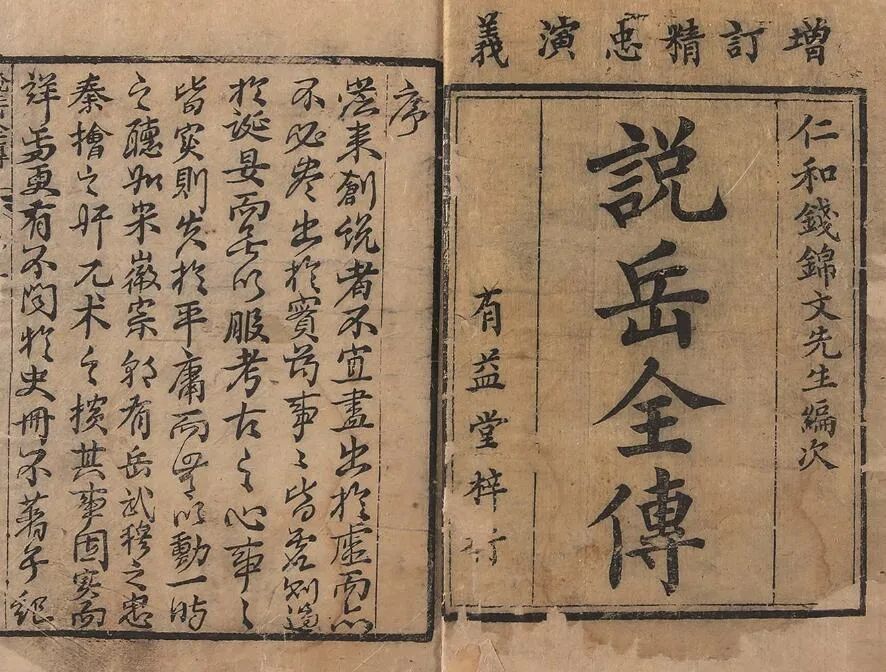 增訂精忠演義
仁和錢錦文先生編次
說岳全傳
有益堂梓行
序
從来創說者不宜盡出於虛而亦
不必尽出於實苟事々皆虛則過
於誕妄而無以服考古之心事々
皆實則失於平庸而無以動一時
之聽如宋徽宗朝有岳武穆之忠
秦檜之奸兀术之橫其事固實而
詳焉更有不聞於史冊不著於紀